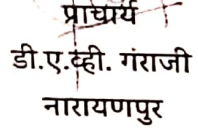 प्राचार्य
डी.ए.व्ही. गंराजी
नारायणपुर